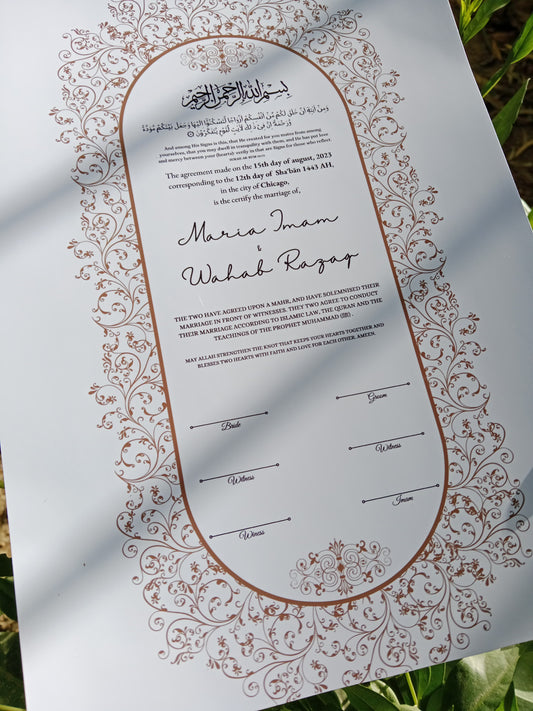 بِسْمِ اللهِ الرَّحْمٰنِ الرَّحِيْمِ
وَمِنْ اٰيٰتِهٖٓ اَنْ خَلَقَ لَكُمْ مِّنْ اَنْفُسِكُمْ اَزْوَاجًا لِّتَسْكُنُوْٓا اِلَيْهَا وَجَعَلَ بَيْنَكُمْ مَّوَدَّةً
وَّرَحْمَةً اِنَّ فِيْ ذٰلِكَ لَاٰيٰتٍ لِّقَوْمٍ يَّتَفَكَّرُوْنَ
And among His Signs is this, that He created for you mates from among
yourselves, that you may dwell in tranquility with them; and He has put love
and mercy between your (hearts): verily in that are Signs for those who reflect.
The agreement made on the 15th day of august, 2023
corresponding to the 12th day of Sha'bān 1443 AH,
in the city of Chicago,
is the certify the marriage of,
Maria Imam
&
Wahab Razaq
THE TWO HAVE AGREED UPON A MAHR, AND HAVE SOLEMNISED THEIR
MARRIAGE IN FRONT OF WITNESSES. THEY TWO AGREE TO CONDUCT
THEIR MARRIAGE ACCORDING TO ISLAMIC LAW, THE QURAN AND THE
TEACHINGS OF THE PROPHET MUHAMMAD (ﷺ) .
MAY ALLAH STRENGTHEN THE KNOT THAT KEEPS YOUR HEARTS TOGETHER AND
BLESSES TWO HEARTS WITH FAITH AND LOVE FOR EACH OTHER. AMEEN.
Groom
Bride
Witness
Witness
Imam
Winess